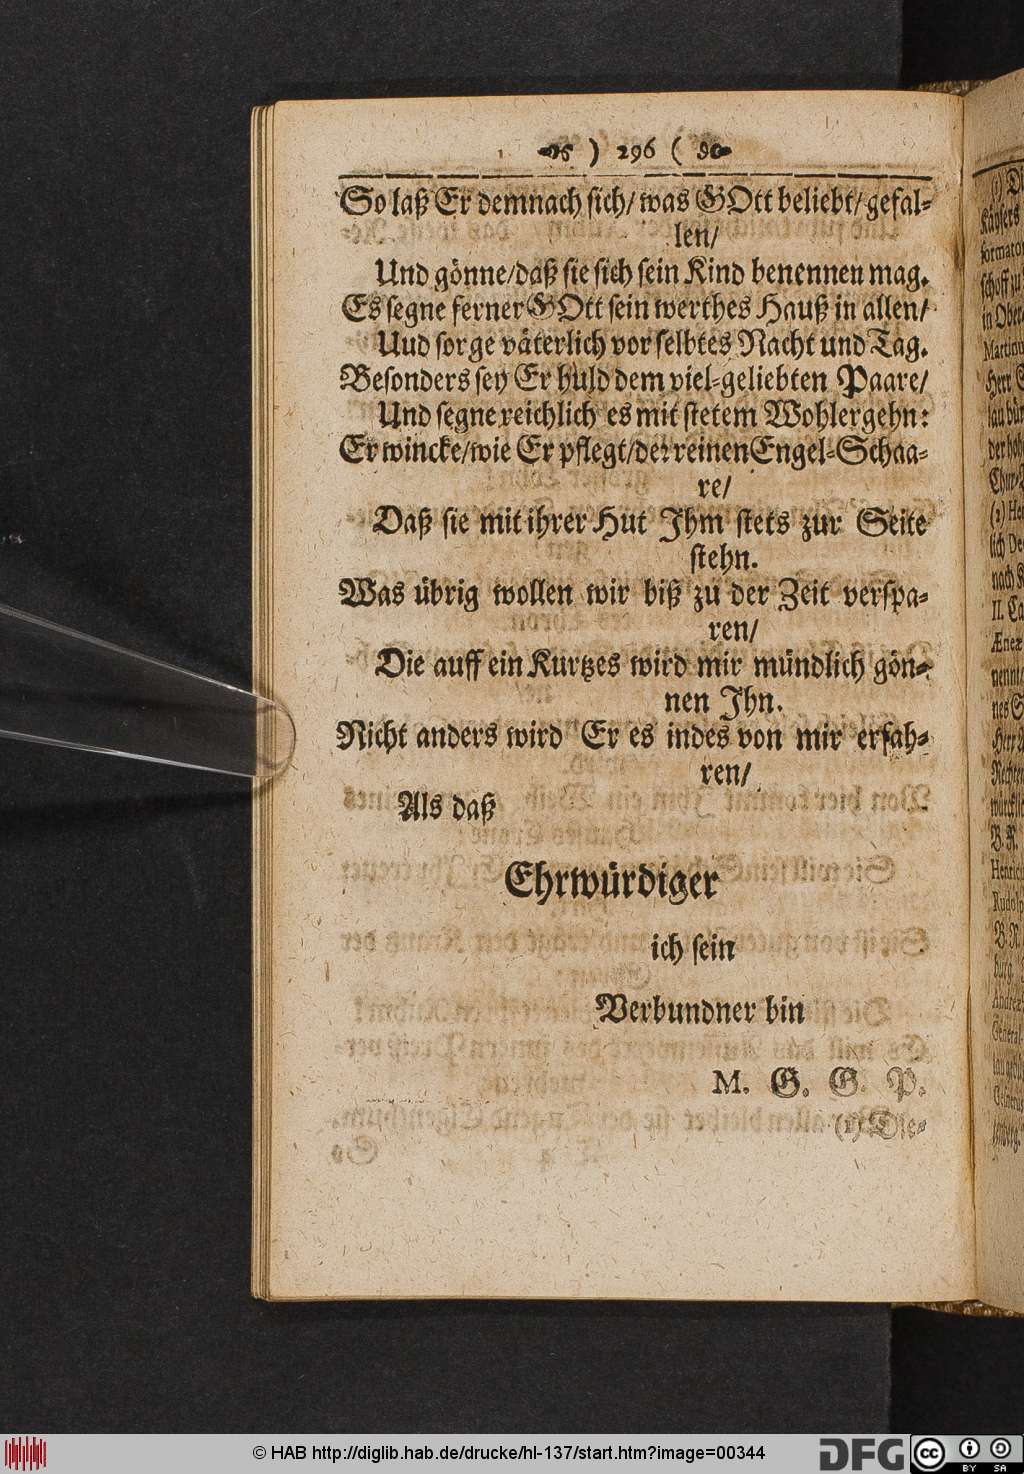 ) 296 (
So laß Er demnach sich/ was GOtt beliebt/ gefal-
len/
Und gönne/daß sie sich sein Kind benennen mag.
Es segne ferner GOtt sein werthes Hauß in allen/
Uud sorge väterlich vor selbtes Nacht und Tag.
Besonders sey Er huld dem viel-geliebten Paare/
Und segne reichlich es mit stetem Wohlergehn:
Er wincke/wie Er pflegt/der reinen Engel-Schaa-
re/
Daß sie mit ihrer Hut Ihm stets zur Seite
stehn.
Was übrig wollen wir biß zu der Zeit verspa-
ren/
Die auff ein Kurtzes wird mir mündlich gön-
nen Ihn.
Nicht anders wird Er es indes von mir erfah-
ren/
Als daß
Ehrwürdiger
ich sein
Verbundner bin
M. G. G. P.
(1) Die-
© HAB http://diglib.hab.de/drucke/hl-137/start.htm?image=00344
DFG
cc
BY SA